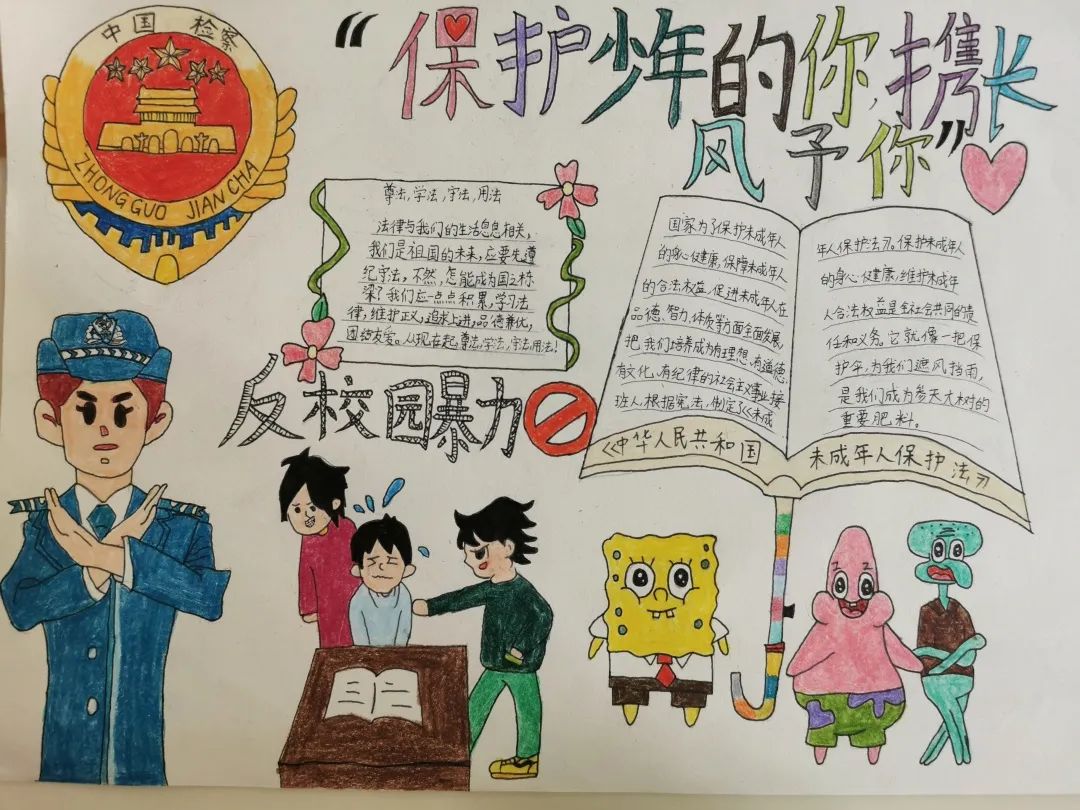 中国 检察
ZHONG GUO JIAN CHA
“保护少年的你,携长
风予你”
尊法,学法,守法,用法
法律与我们的生活息息相关,
我们是祖国的未来,应要先遵
纪守法,不然,怎能成为国之栋
梁?我们应一点点积累,学习法
律,维护正义,追求上进,品德兼优,
团结友爱。从现在起,尊法,学法,守法,用法!
反校园暴力
国家为了保护未成年人
的身心健康,保障未成年人
的合法权益,促进未成年人在
品德、智力、体质等方面全面发展,
把我们培养成为有理想、有道德、
有文化、有纪律的社会主义事业接
班人,根据宪法,制定了《未成
年人保护法》。保护未成年人
的身心健康,维护未成年
人合法权益是全社会共同的责
任和义务。它就像一把保
护伞,为我们遮风挡雨,
是我们成为参天大树的
重要肥料。
《中华人民共和国
未成年人保护法》